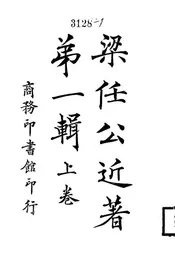 3128-1
梁任公近著
第一輯上卷
商務印書館印行